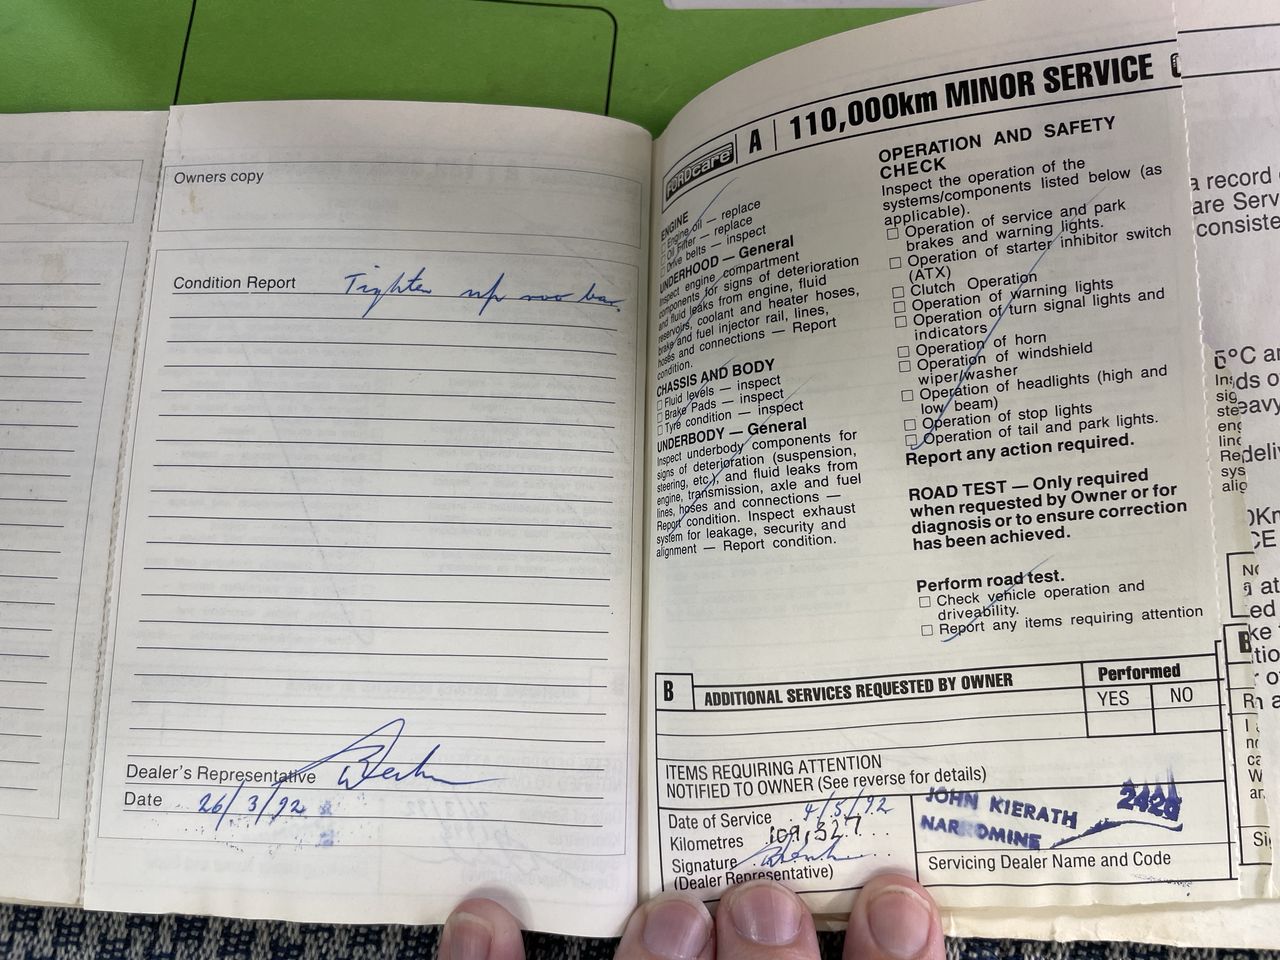 Owners copy
Condition Report Tighten up roo bar.
Dealer's Representative
Date 26/3/92
FORDcare A 110,000km MINOR SERVICE
ENGINE
Engine oil — replace
Oil Filter — replace
Drive belts — inspect
UNDERHOOD — General
Inspect engine compartment
components for signs of deterioration
and fluid leaks from engine, fluid
reservoirs, coolant and heater hoses,
brake and fuel injector rail, lines,
hoses and connections — Report
condition.
CHASSIS AND BODY
Fluid levels — inspect
Brake Pads — inspect
Tyre condition — inspect
UNDERBODY — General
Inspect underbody components for
signs of deterioration (suspension,
steering, etc.), and fluid leaks from
engine, transmission, axle and fuel
lines, hoses and connections —
Report condition. Inspect exhaust
system for leakage, security and
alignment — Report condition.
OPERATION AND SAFETY
CHECK
Inspect the operation of the
systems/components listed below (as
applicable).
Operation of service and park
brakes and warning lights.
Operation of starter inhibitor switch
(ATX)
Clutch Operation
Operation of warning lights
Operation of turn signal lights and
indicators
Operation of horn
Operation of windshield
wiper/washer
Operation of headlights (high and
low beam)
Operation of stop lights
Operation of tail and park lights.
Report any action required.
ROAD TEST — Only required
when requested by Owner or for
diagnosis or to ensure correction
has been achieved.
Perform road test.
Check vehicle operation and
driveability.
Report any items requiring attention
B ADDITIONAL SERVICES REQUESTED BY OWNER
Performed
YES NO
ITEMS REQUIRING ATTENTION
NOTIFIED TO OWNER (See reverse for details)
Date of Service 4/5/92
Kilometres 109,327
Signature
(Dealer Representative)
JOHN KIERATH 2420
NARROMINE
Servicing Dealer Name and Code
a record
are Serv
consiste